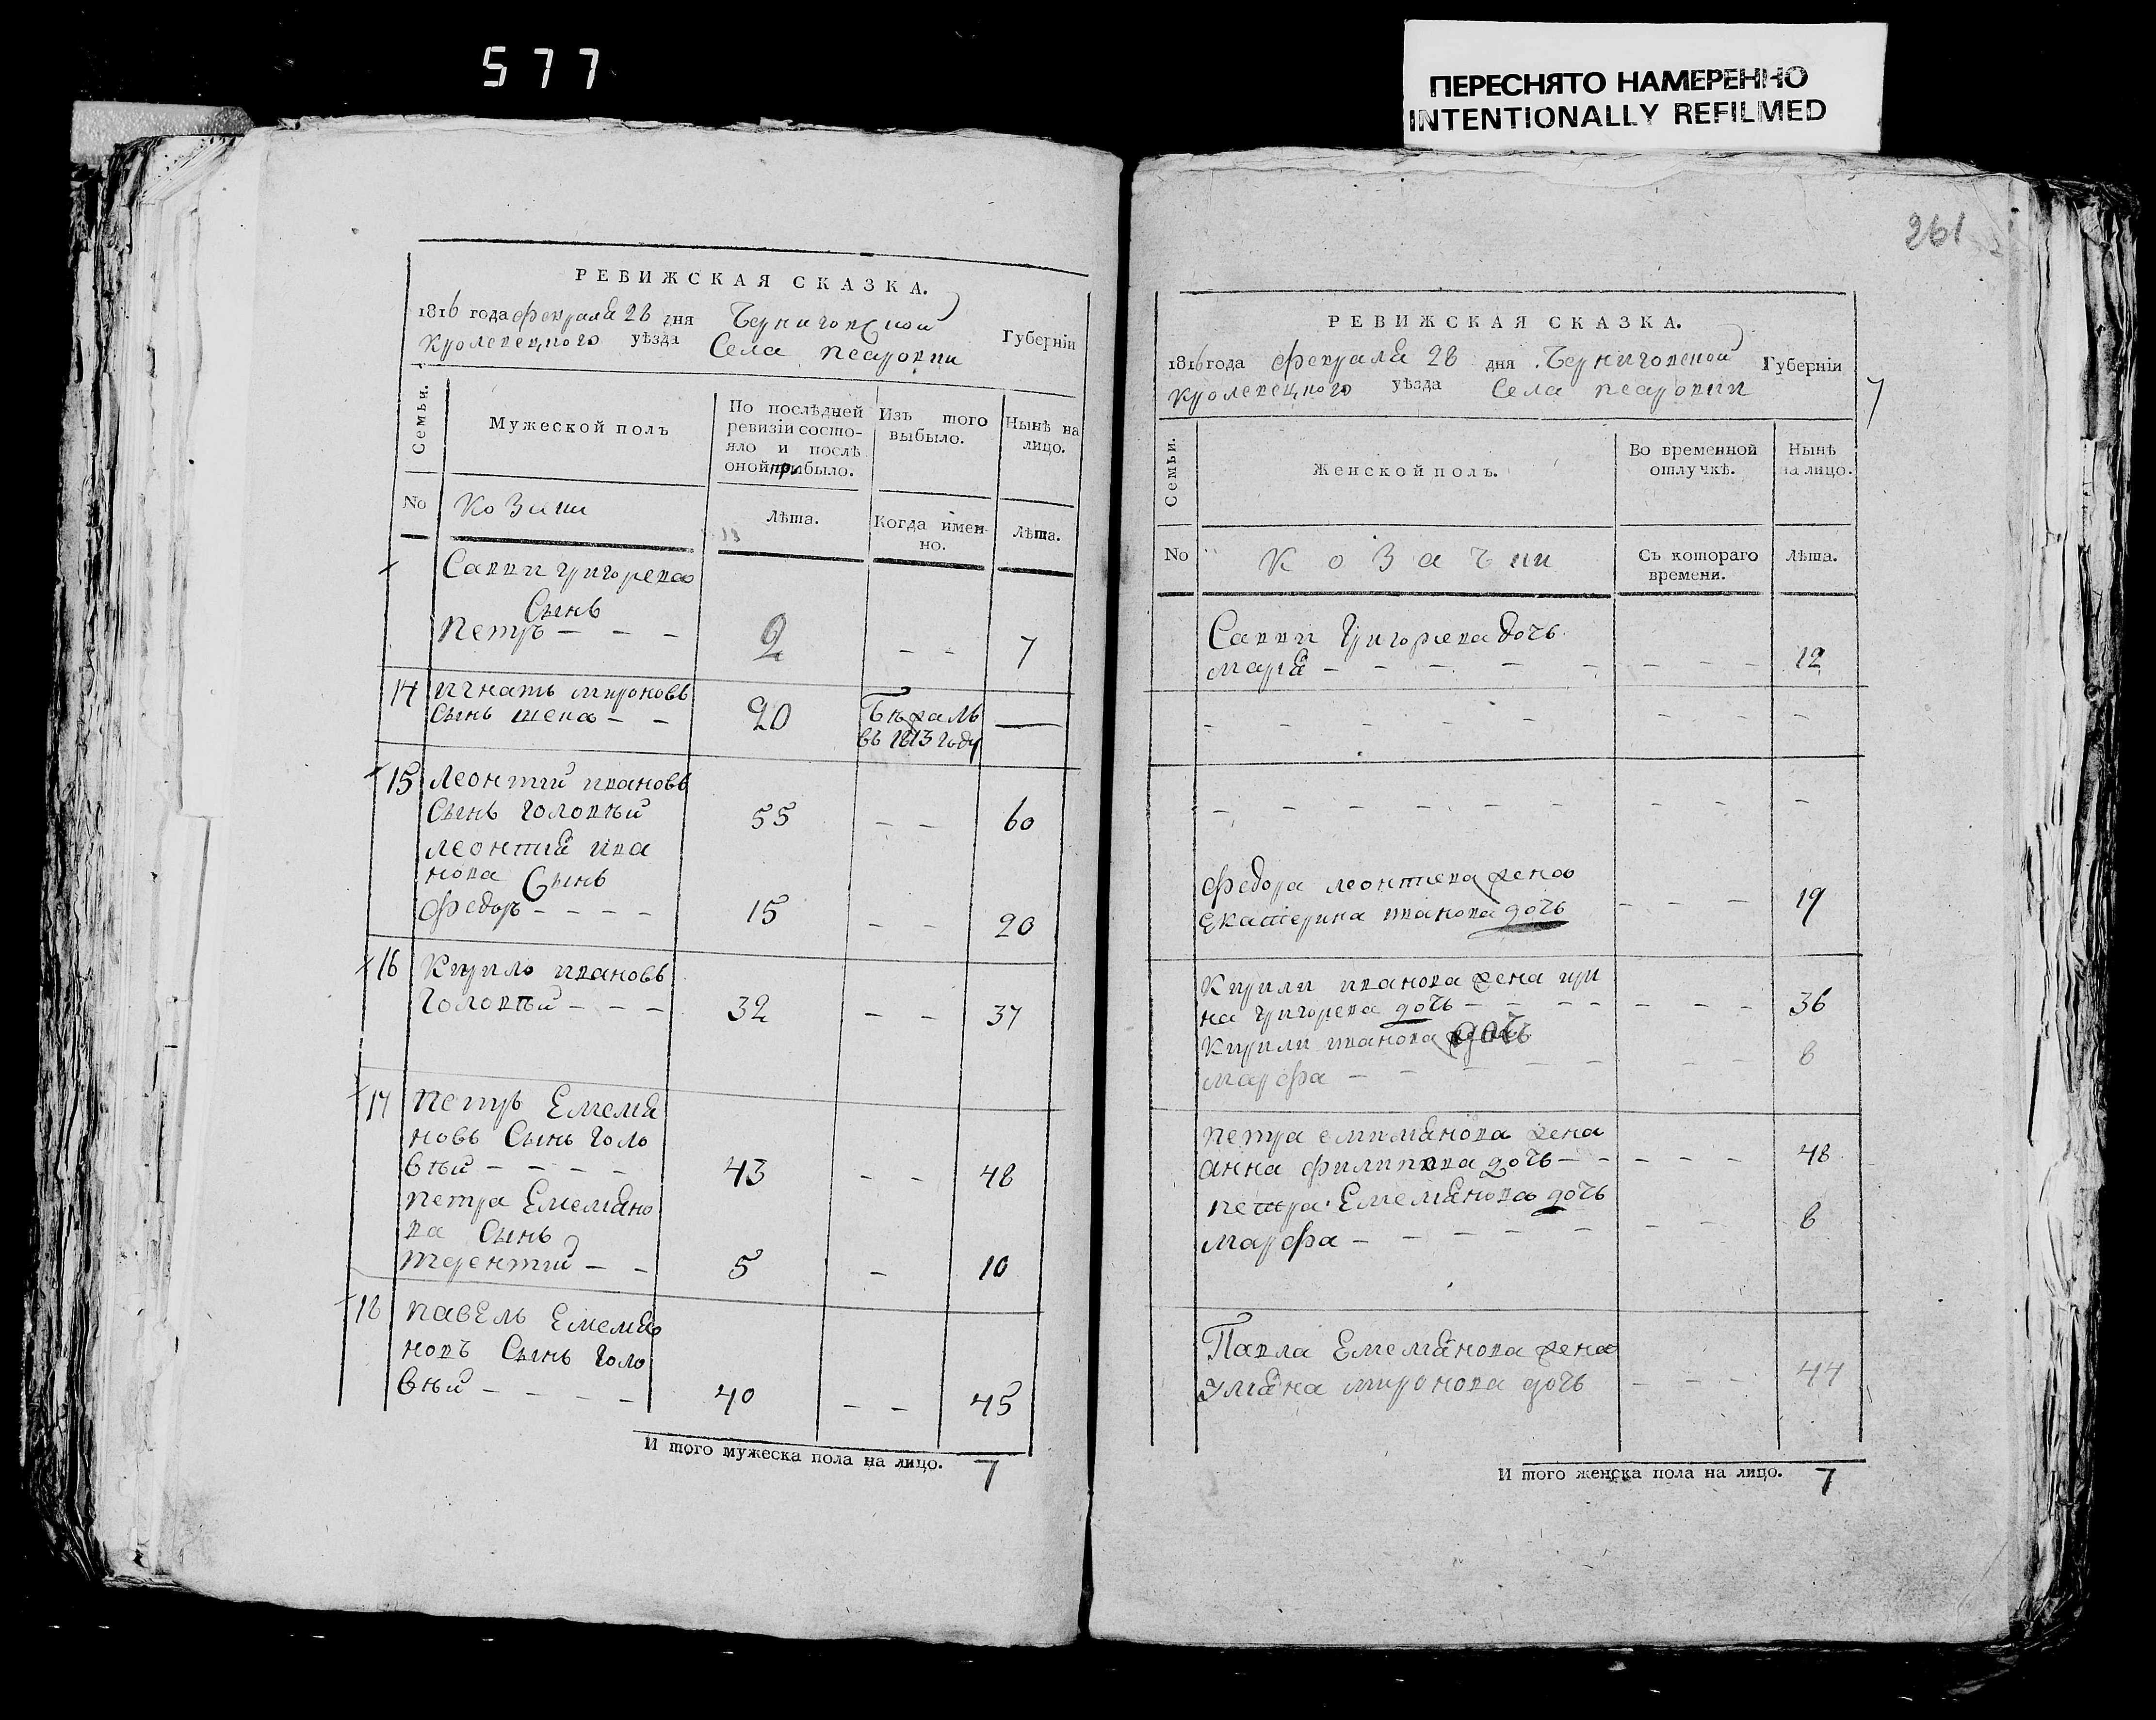 577
ПЕРЕСНЯТО НАМЕРЕННО
INTENTIONALLY REFILMED
261
РЕВИЖСКАЯ СКАЗКА.
1816 года февраля 28 дня Черниговской Губерніи
Кролевецкого уѣзда Села псаровки
Семьи.
Мужеской полъ
По послѣдней
ревизіи состо-
яло и послѣ
оной прибыло.
Изъ того
выбыло.
Нынѣ на
лицо.
No
Козаки
Лѣта.
Когда имен-
но.
Лѣта.
Савви григорева
Сынъ
Петръ - - - 2 - - 7
14 игнатъ мироновъ
Сынъ - - 20 Бѣжалъ —
въ 1813 году
15 Леонтий ивановъ
Сынъ Головнѣй 55 - - 60
леонтия ива
нова Сынъ
Федоръ - - - - 15 - - 20
16 Кирило ивановъ
Головнѣй - - - 32 - - 37
17 Петръ Емелія
новъ Сынъ Голо
внѣй - - - - 43 - - 48
петра Емеліяно
ва Сынъ
терентий - - 5 - 10
18 павелъ Емелія
новъ Сынъ Голо
внѣй - - - - 40 - - 45
И того мужеска пола на лицо. 7
РЕВИЖСКАЯ СКАЗКА.
1816 года февраля 28 дня Черниговской Губерніи
Кролевецкого уѣзда Села псаровки
7
Семьи.
Женской полъ.
Во временной
отлучкѣ.
Нынѣ
на лицо.
No
Козачки
Съ котораго
времени.
Лѣта.
Савви Григорева дочь
марія - - - - - - - - 12
- - - - - - - - - -
- - - - - - - - - -
Федора леонтиева жена
Екатерина иванова дочь - - - 19
Кирили иванова жена ири
на григорева дочь - - - - - - - 36
Кирили иванова дочь
марфа - - - - - - - 8
петра емилиянова жена
анна филипова дочь - - - - - - 48
петра Емелиянова дочь
марфа - - - - - - - 8
Павла Емелиянова жена
улияна миронова дочь - - - 44
И того женска пола на лицо. 7